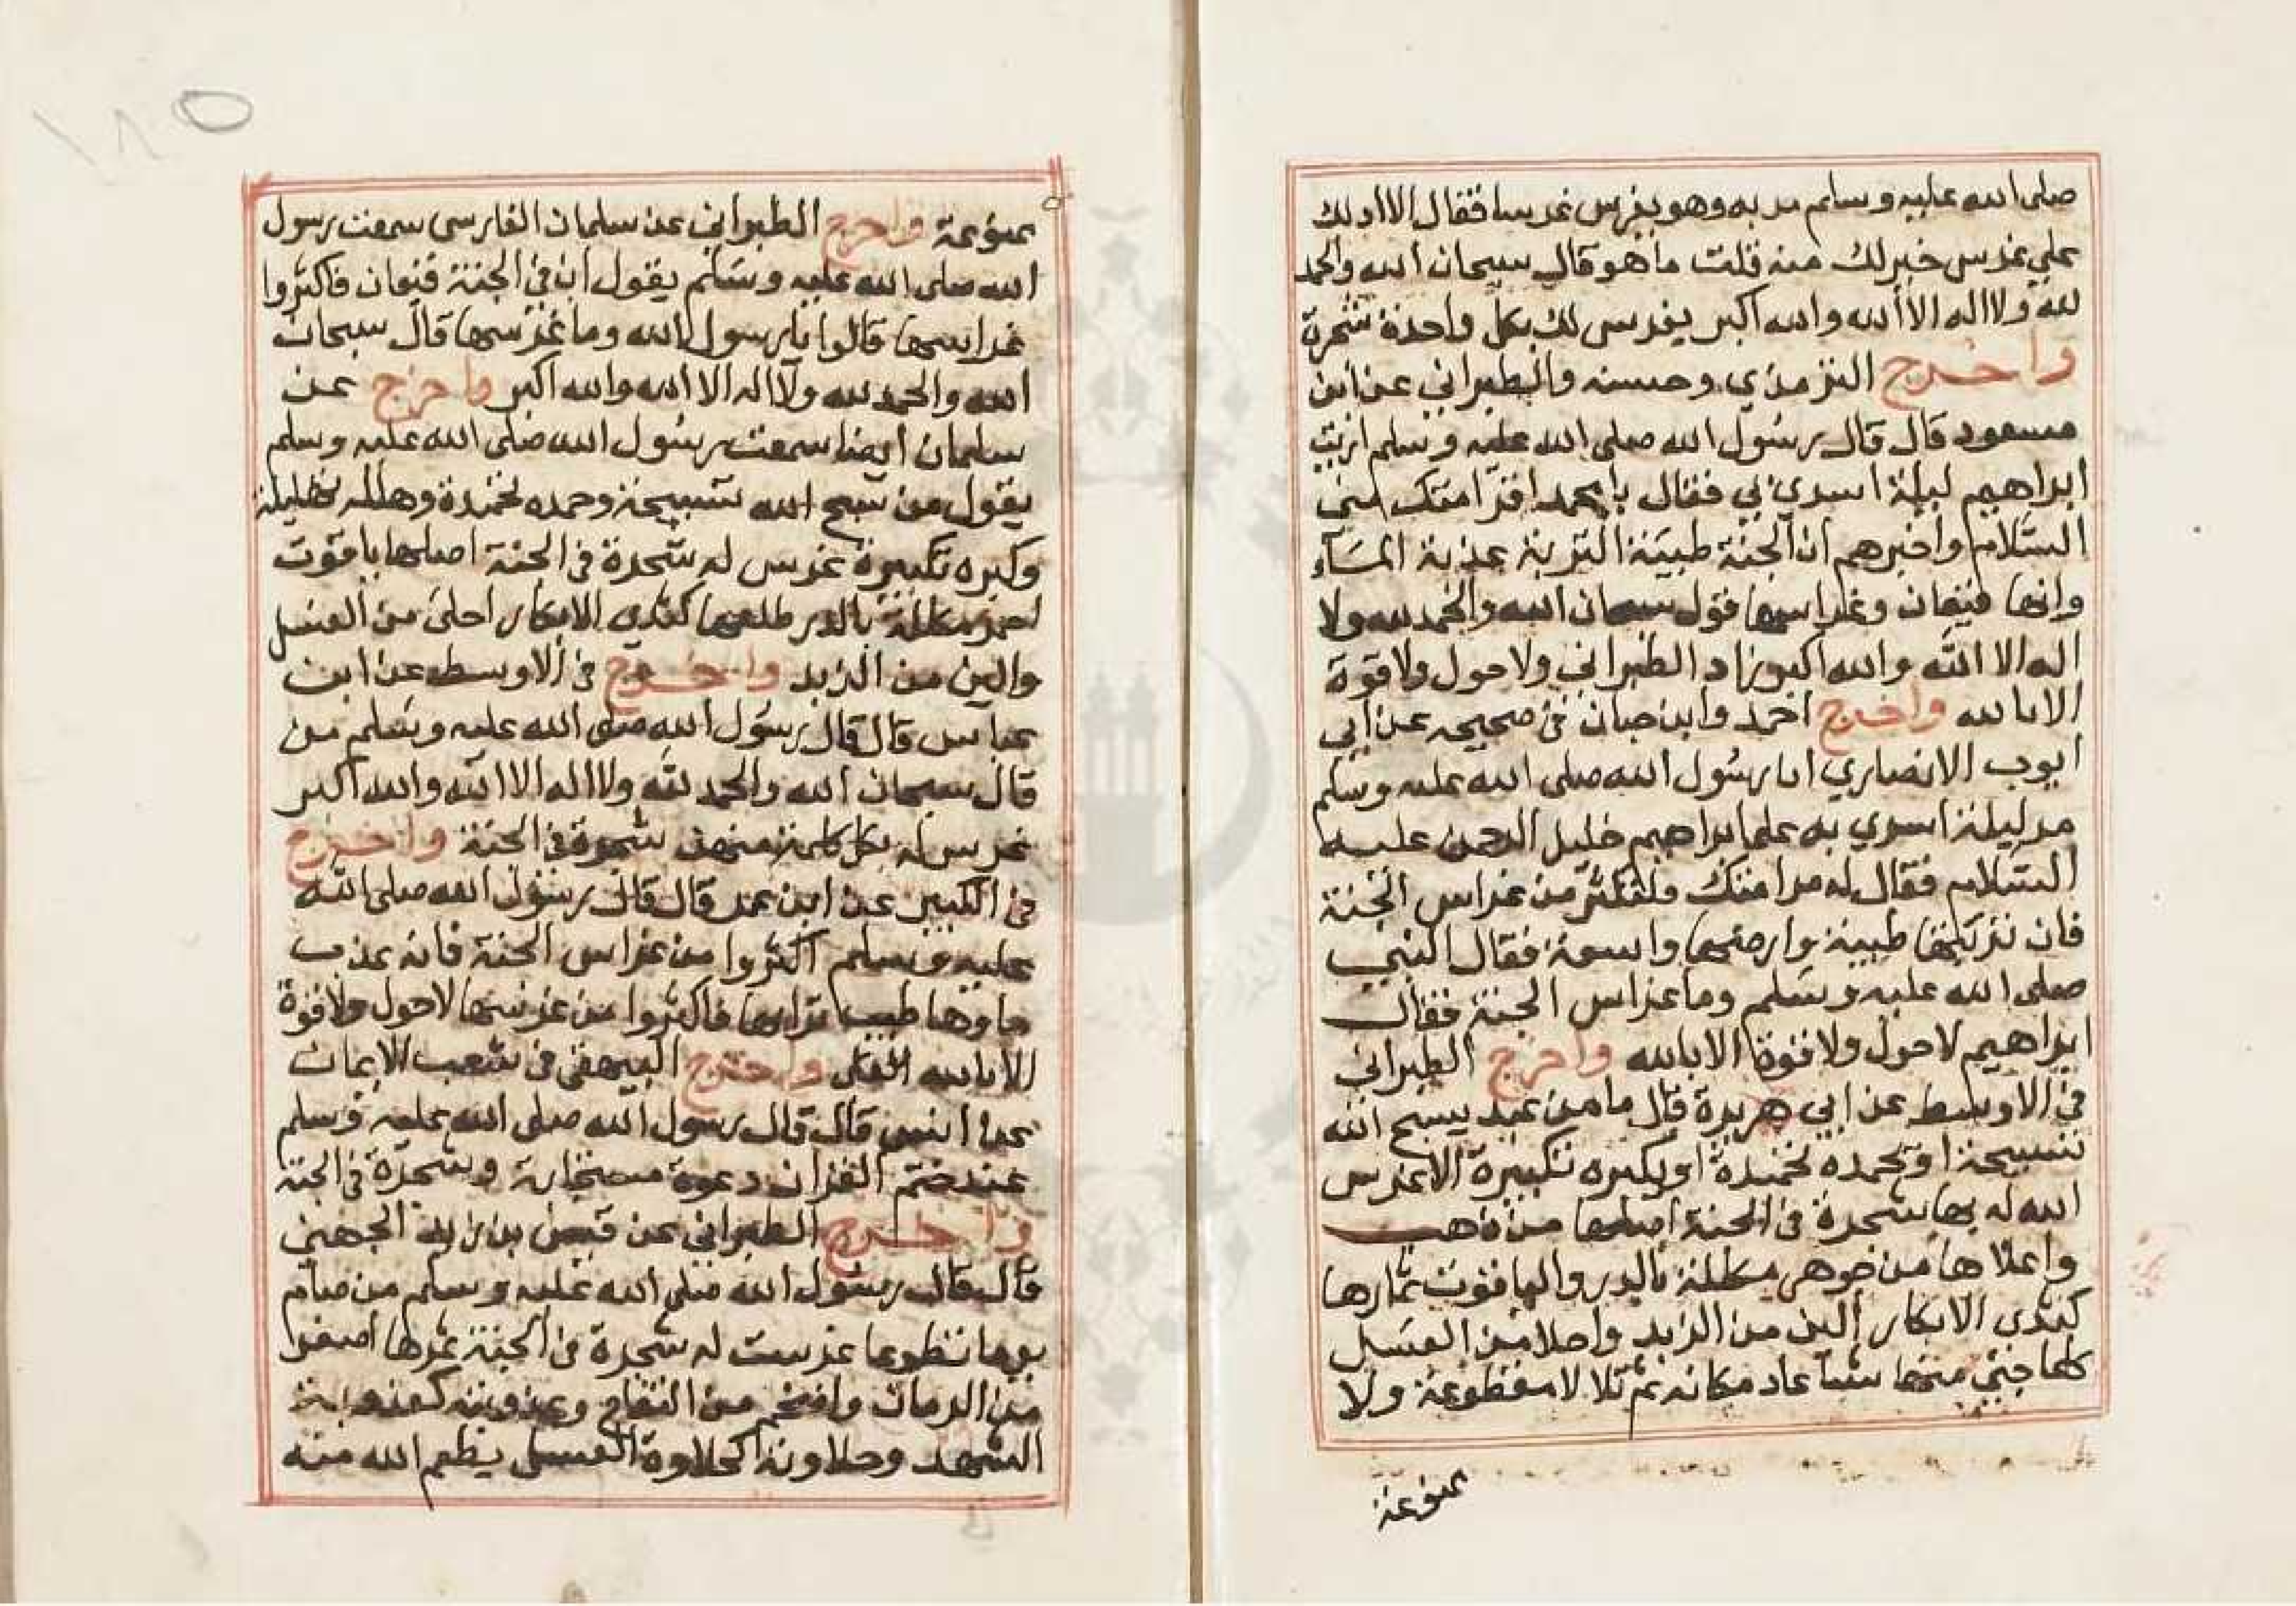 صلى الله عليه وسلم مر به وهو يغرس غرسا فقال الا ادلك
على غرس خير لك منه قلت ما هو قال سبحان الله والحمد
لله ولا اله الا الله والله اكبر يغرس لك بكل واحدة شجرة
واخرج الترمذي وحسنه والطبراني عن ابن
مسعود قال قال رسول الله صلى الله عليه وسلم رايت
ابراهيم ليلة اسري بي فقال يا محمد اقرا امتك مني
السلام واخبرهم ان الجنة طيبة التربة عذبة الماء
وانها قيعان وغراسها قول سبحان الله والحمد لله ولا
اله الا الله والله اكبر وزاد الطبراني ولا حول ولا قوة
الا بالله واخرج احمد وابن حبان في صحيحه عن ابي
ايوب الانصاري ان رسول الله صلى الله عليه وسلم
مر ليلة اسري به على ابراهيم خليل الرحمن عليه
السلام فقال له مر امتك فلتكثر من غراس الجنة
فان تربتها طيبة وارضها واسعة فقال النبي
صلى الله عليه وسلم وما غراس الجنة فقال
ابراهيم لا حول ولا قوة الا بالله واخرج الطبراني
في الاوسط عن ابي هريرة قال ما من عبد يسبح الله
تسبيحة او يحمده تحميدة او يكبره تكبيرة الا غرس
الله له بها شجرة في الجنة اصلها من ذهب
واعلاها من جوهر مكللة بالدر والياقوت ثمارها
كثدي الابكار الين من الزبد واحلا من العسل
كلما جني منها شيأ عاد مكانه ثم تلا لا مقطوعة ولا
ممنوعة
ممنوعة واخرج الطبراني عن سلمان الفارسي سمعت رسول
الله صلى الله عليه وسلم يقول ان في الجنة قيعان فاكثروا
غراسها قالوا يا رسول الله وما غرسها قال سبحان
الله والحمد لله ولا اله الا الله والله اكبر واخرج عن
سلمان ايضا سمعت رسول الله صلى الله عليه وسلم
يقول من سبح الله تسبيحة وحمده تحميدة وهلله تهليلة
وكبره تكبيرة غرس له شجرة في الجنة اصلها ياقوت
احمر مكللة بالدر طلعها كثدي الابكار احلى من العسل
والين من الزبد واخرج في الاوسط عن ابن
عباس قال قال رسول الله صلى الله عليه وسلم من
قال سبحان الله والحمد لله ولا اله الا الله والله اكبر
غرس له بكل كلمة منهن شجرة في الجنة واخرج
في الكبير عن ابن عمر قال قال رسول الله صلى الله
عليه وسلم اكثروا من غراس الجنة فانه عذب
ماوها طيب ترابها فاكثروا من غرسها لا حول ولا قوة
الا بالله واخرج البيهقي في شعب الايمان
عن انس قال قال رسول الله صلى الله عليه وسلم
عند ختم القران دعوة مستجابة وشجرة في الجنة
واخرج الطبراني عن قيس بن زيد الجهني
قال قال رسول الله صلى الله عليه وسلم من صام
يوما تطوعا غرست له شجرة في الجنة ثمرها اصغر
من الرمان واضخم من التفاح وعذوبته كعذوبة
الشهد وحلاوته كحلاوة العسل يطعم الله منه
١٨٥